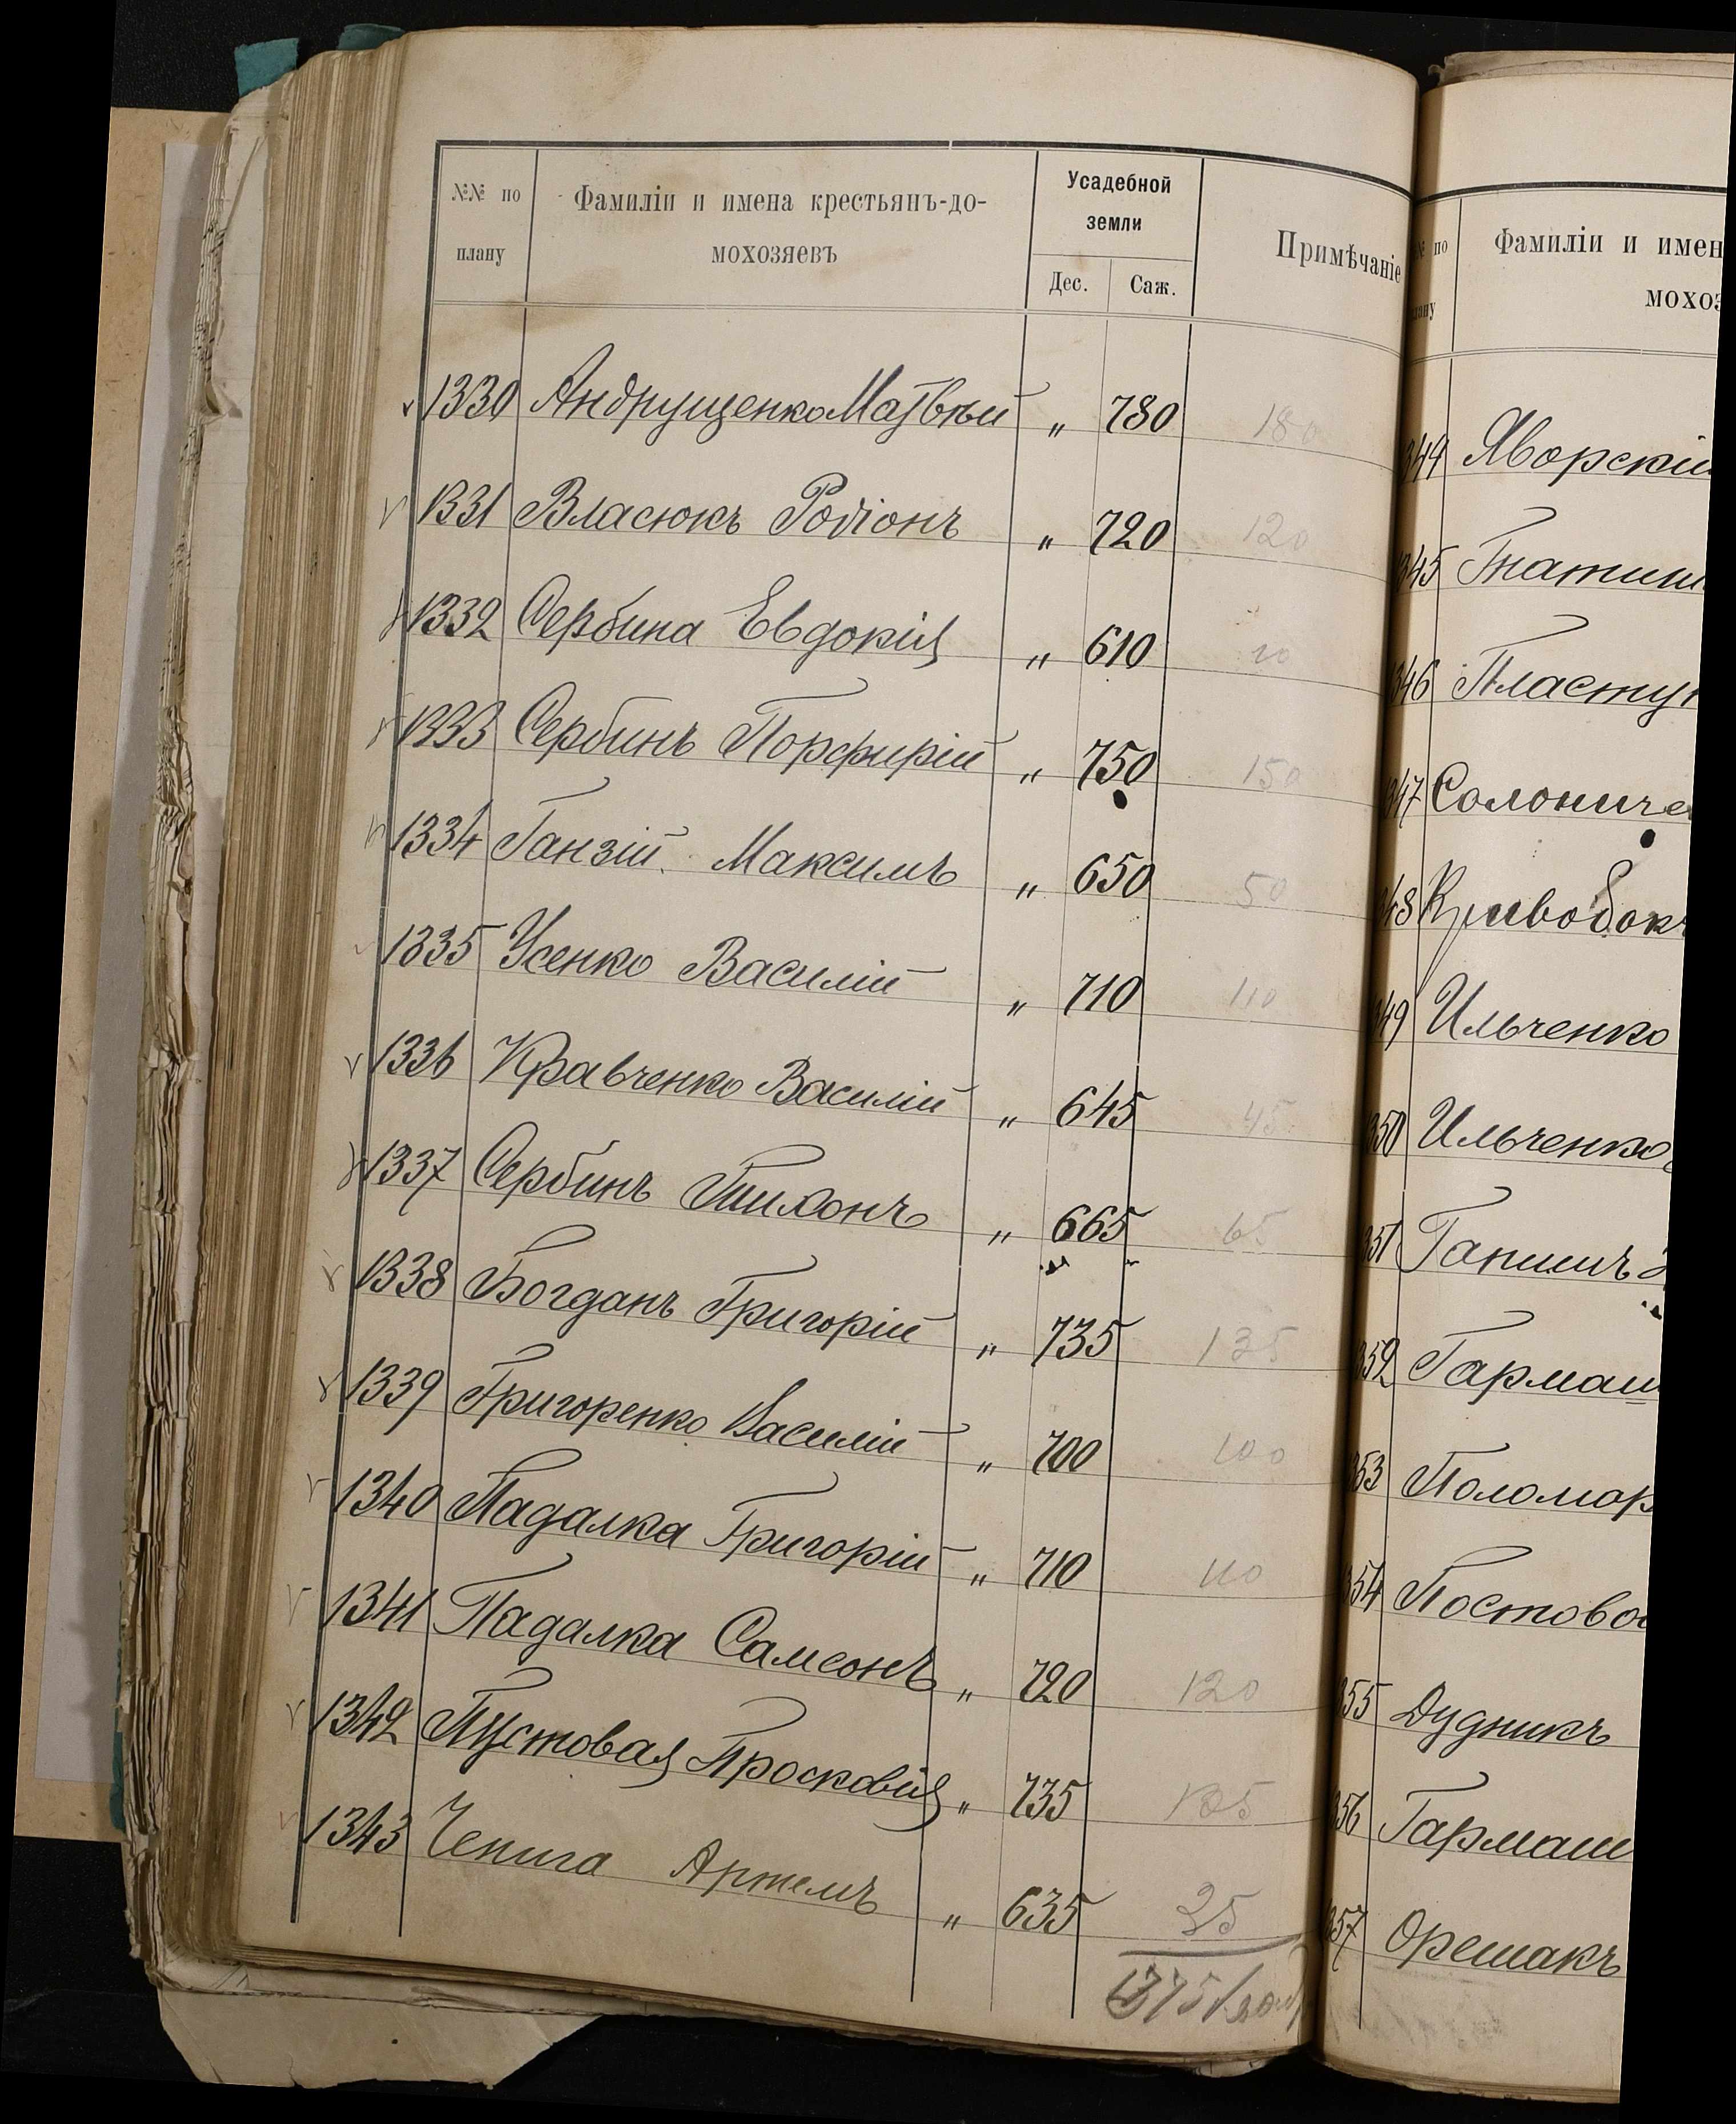 №№ по плану
Фамиліи и имена крестьянъ-до-
мохозяевъ
Усадебной
земли
Дес. Саж.
Примѣчаніе
1330 Андрущенко Матвѣй " 780 180
1331 Власюкъ Родіонъ " 720 120
1332 Сербина Евдокія " 610 10
1333 Сербинъ Порфирій " 750 150
1334 Ганзій Максимъ " 650 50
1335 Усенко Василій " 710 110
1336 Кравченко Василій " 645 45
1337 Сербинъ Тихонъ " 665 65
1338 Богданъ Григорій " 735 135
1339 Григоренко Василій " 700 100
1340 Падалка Григорій " 710 110
1341 Падалка Самсонъ " 720 120
1342 Пустовая Просковія " 735
1343 Чепига Артемъ " 635
по
Фамиліи и имен
мохоз
344 Яворскій
345
346 Пластун
347 Солониче
348 Кривобокъ
349 Ильченко
350 Ильченко
351
352 Гармаш
353 Поломар
354 Постово
355 Дудникъ
356 Гармаш
357 Орешакъ